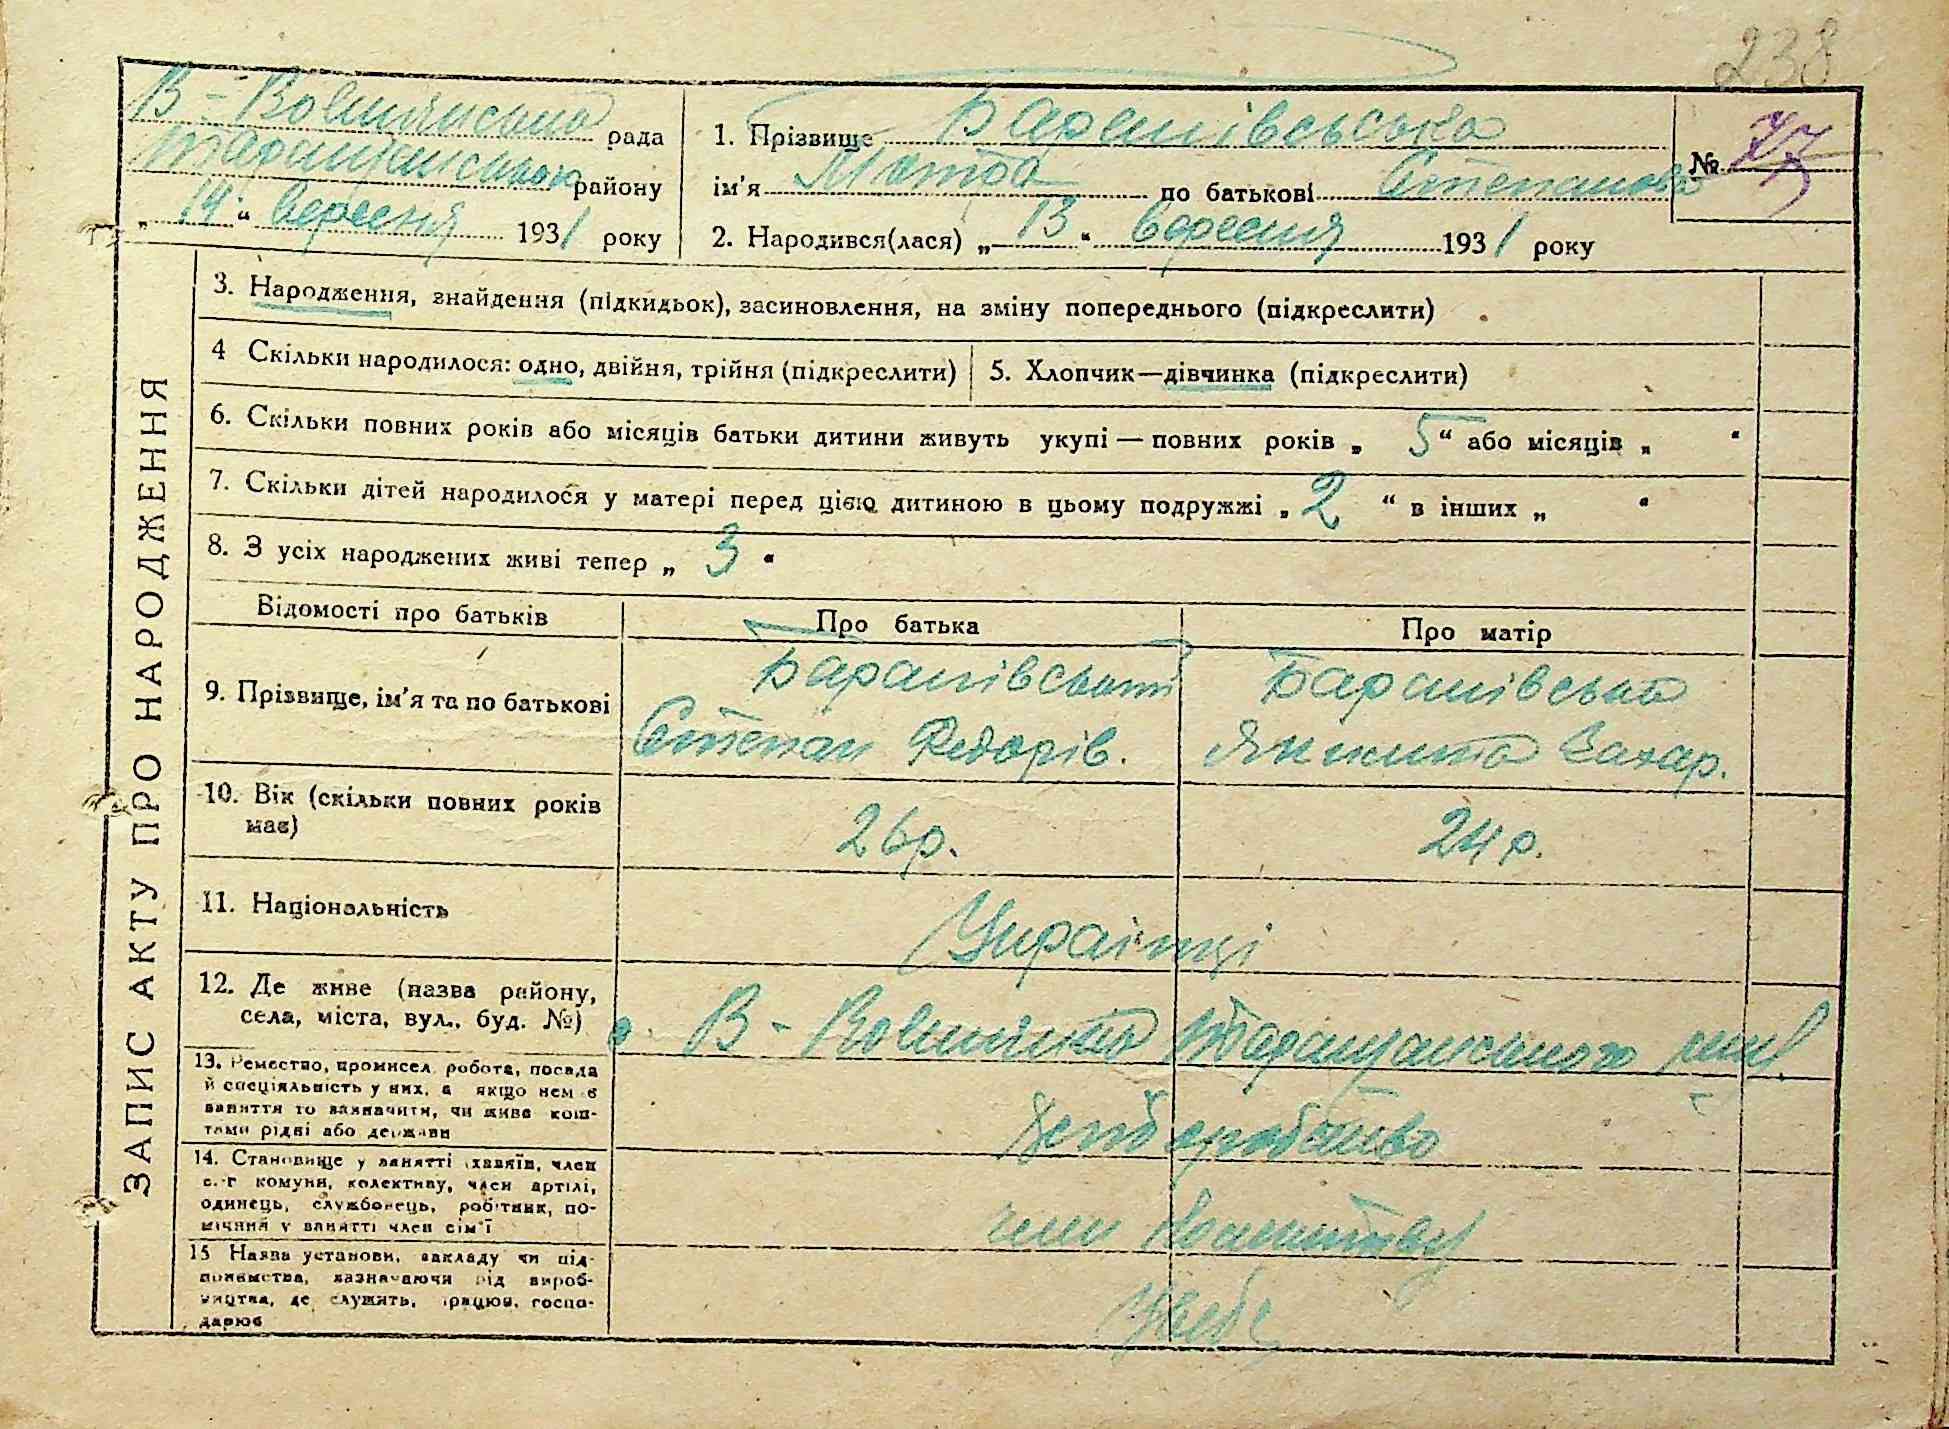 238
В-Вовнянська рада
Таращанського району
„14“ вересня 1931 року
1. Прізвище Баранівська
ім'я Мотря по батькові Степановa
2. Народився(лася) „13“ вересня 1931 року
№ 77
ЗАПИС АКТУ ПРО НАРОДЖЕННЯ
3. Народження, знайдення (підкидьок), засиновлення, на зміну попереднього (підкреслити)
4 Скільки народилося: одно, двійня, трійня (підкреслити)
5. Хлопчик—дівчинка (підкреслити)
6. Скільки повних років або місяців батьки дитини живуть укупі — повних років „ 5 “ або місяців „ “
7. Скільки дітей народилося у матері перед цією дитиною в цьому подружжі „ 2 “ в інших „ “
8. З усіх народжених живі тепер „ 3 “
Відомості про батьків
Про батька
Про матір
9. Прізвище, ім'я та по батькові
Баранівський
Степан Федорів.
Баранівська
Захар.
10. Вік (скільки повних років
має)
26р.
24р.
11. Національність
Українці
12. Де живе (назва району,
села, міста, вул., буд. №)
В-Вовнянка Таращанського
13. Ремество, промисел, робота, посада
й спеціяльність у них, а якщо нем є
заняття то зазначити, чи живе кош-
тами рідні або держави
хліборобство
14. Становище у занятті хазяїн, член
с.-г комуни, колективу, член артілі,
одинець, службовець, робітник, по-
мічний у занятті член сім'ї
член
15 Назва установи, закладу чи під-
приємства, зазначаючи рід вироб-
ництва, де служить, працює, госпо-
дарює
У себе